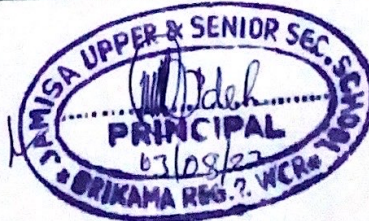 JAMISA UPPER & SENIOR SEC. SCHOOL
PRINCIPAL
03/08/22
BRIKAMA REG. WCR